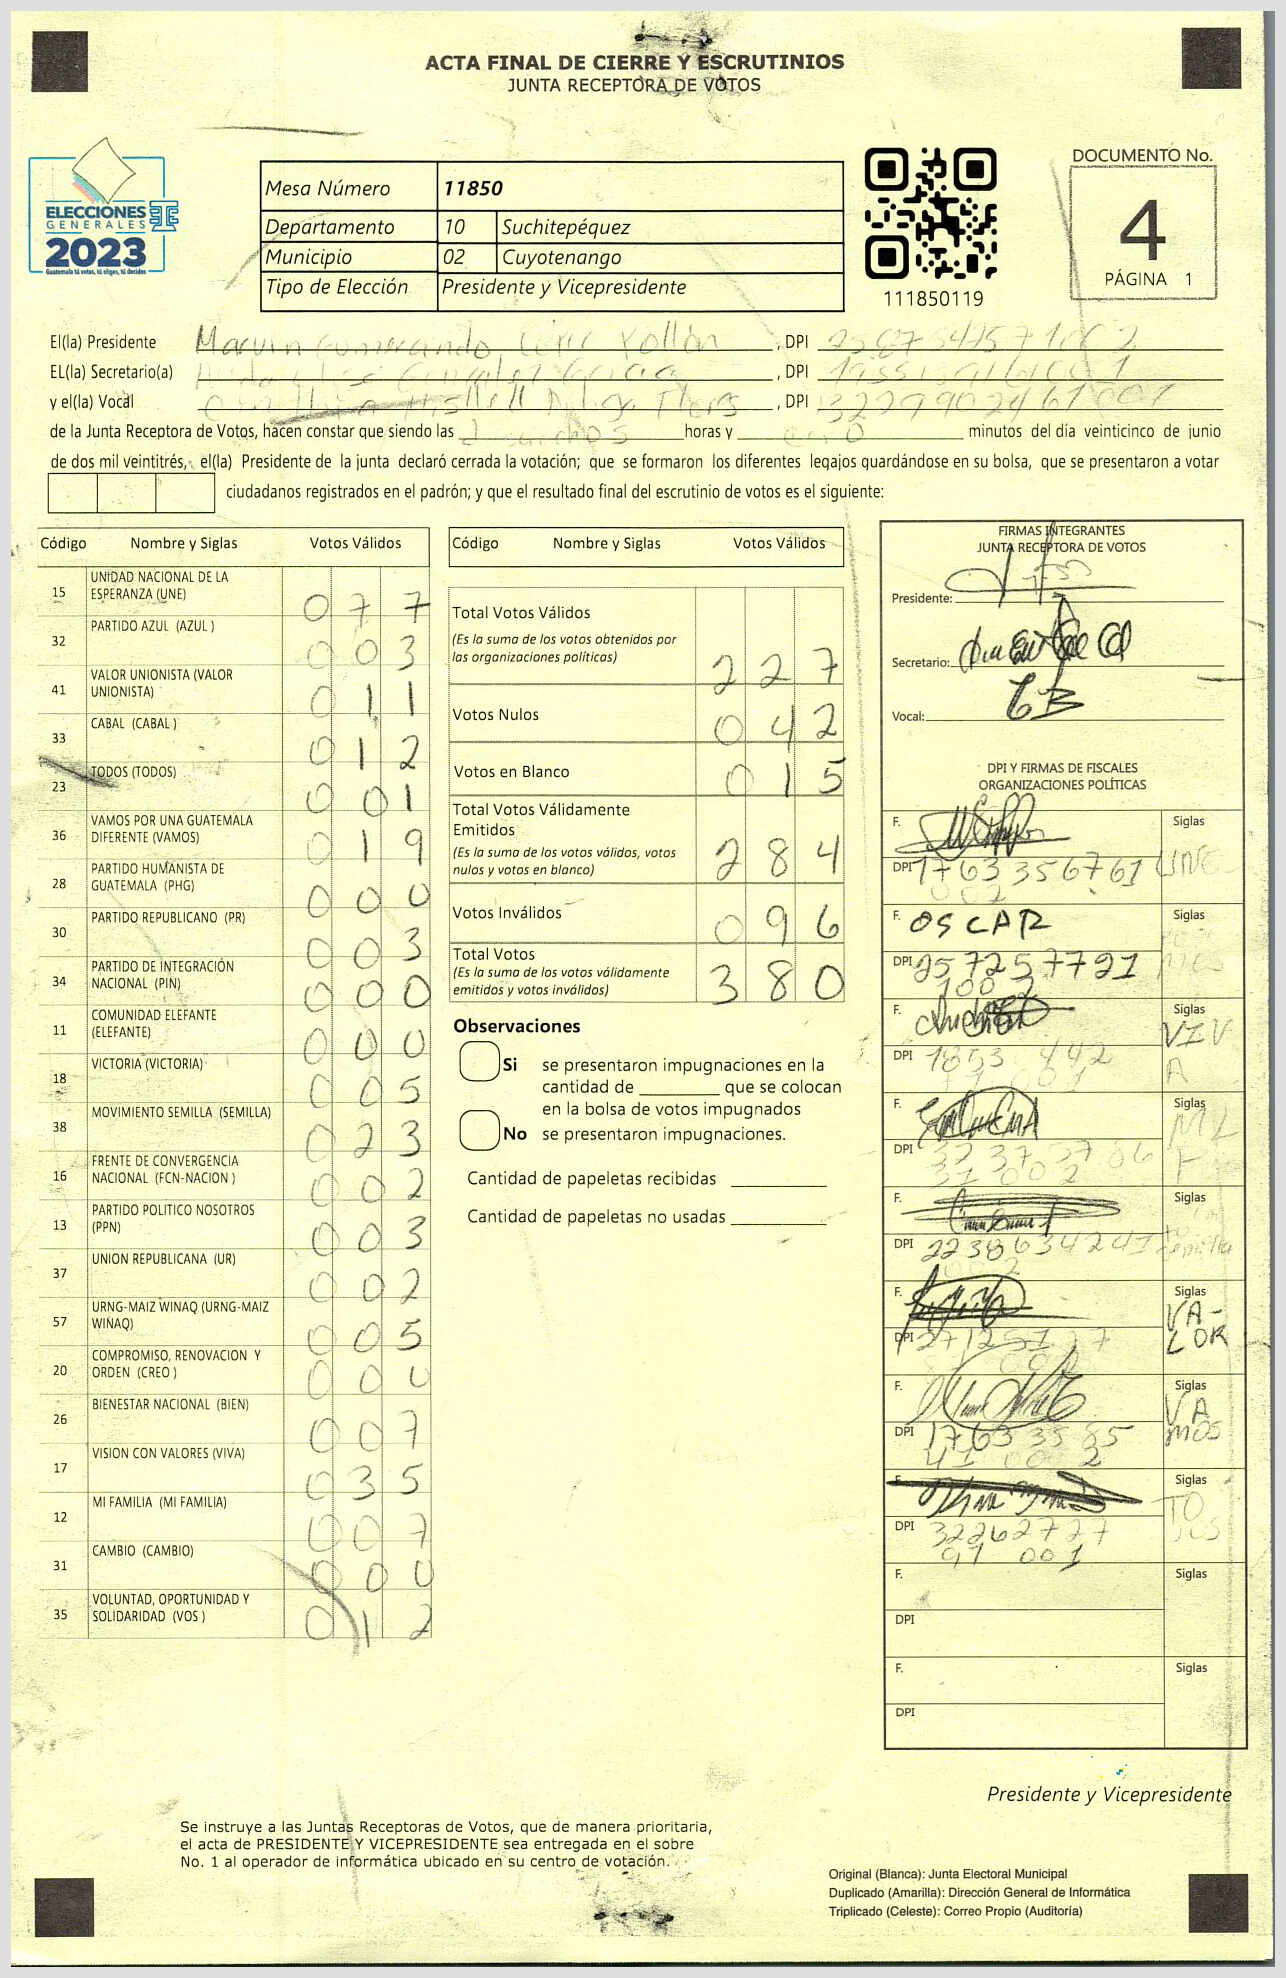 ACTA FINAL DE CIERRE Y ESCRUTINIOS
JUNTA RECEPTORA DE VOTOS
ELECCIONES
GENERALES
2023
Guatemala tú votas, tú eliges, tú decides
Mesa Número 11850
Departamento 10 Suchitepéquez
Municipio 02 Cuyotenango
Tipo de Elección Presidente y Vicepresidente
111850119
DOCUMENTO No.
4
PÁGINA 1
El(la) Presidente Marvin , DPI
EL(la) Secretario(a) , DPI
y el(la) Vocal , DPI
de la Junta Receptora de Votos, hacen constar que siendo las horas y minutos del día veinticinco de junio
de dos mil veintitrés, el(la) Presidente de la junta declaró cerrada la votación; que se formaron los diferentes legajos guardándose en su bolsa, que se presentaron a votar
ciudadanos registrados en el padrón; y que el resultado final del escrutinio de votos es el siguiente:
Código Nombre y Siglas Votos Válidos
15 UNIDAD NACIONAL DE LA ESPERANZA (UNE) 077
32 PARTIDO AZUL (AZUL ) 003
41 VALOR UNIONISTA (VALOR UNIONISTA) 011
33 CABAL (CABAL ) 012
23 TODOS (TODOS) 001
36 VAMOS POR UNA GUATEMALA DIFERENTE (VAMOS) 019
28 PARTIDO HUMANISTA DE GUATEMALA (PHG) 000
30 PARTIDO REPUBLICANO (PR) 003
34 PARTIDO DE INTEGRACIÓN NACIONAL (PIN) 000
11 COMUNIDAD ELEFANTE (ELEFANTE) 000
18 VICTORIA (VICTORIA) 005
38 MOVIMIENTO SEMILLA (SEMILLA) 023
16 FRENTE DE CONVERGENCIA NACIONAL (FCN-NACION ) 002
13 PARTIDO POLITICO NOSOTROS (PPN) 003
37 UNION REPUBLICANA (UR) 002
57 URNG-MAIZ WINAQ (URNG-MAIZ WINAQ) 005
20 COMPROMISO, RENOVACION Y ORDEN (CREO ) 000
26 BIENESTAR NACIONAL (BIEN) 007
17 VISION CON VALORES (VIVA) 035
12 MI FAMILIA (MI FAMILIA) 007
31 CAMBIO (CAMBIO) 000
35 VOLUNTAD, OPORTUNIDAD Y SOLIDARIDAD (VOS ) 012
Código Nombre y Siglas Votos Válidos
Total Votos Válidos
(Es la suma de los votos obtenidos por
las organizaciones políticas) 227
Votos Nulos 042
Votos en Blanco 015
Total Votos Válidamente
Emitidos
(Es la suma de los votos válidos, votos
nulos y votos en blanco) 284
Votos Inválidos 096
Total Votos
(Es la suma de los votos válidamente
emitidos y votos inválidos) 380
Observaciones
Si se presentaron impugnaciones en la
cantidad de ________ que se colocan
en la bolsa de votos impugnados
No se presentaron impugnaciones.
Cantidad de papeletas recibidas
Cantidad de papeletas no usadas
FIRMAS INTEGRANTES
JUNTA RECEPTORA DE VOTOS
Presidente:
Secretario:
Vocal:
DPI Y FIRMAS DE FISCALES
ORGANIZACIONES POLÍTICAS
F. Siglas
DPI 1763356761 UNE
002
F. OSCAR Siglas
DPI 257257721
1002
F. Siglas
DPI 1853 442 VIVA
F. Siglas
DPI
F. Siglas
DPI 2238634241
F. Siglas
DPI VA-
LOR
F. Siglas
DPI VA
MOS
F. Siglas
DPI 32262727
91 001
F. Siglas
DPI
F. Siglas
DPI
Presidente y Vicepresidente
Se instruye a las Juntas Receptoras de Votos, que de manera prioritaria,
el acta de PRESIDENTE Y VICEPRESIDENTE sea entregada en el sobre
No. 1 al operador de informática ubicado en su centro de votación.
Original (Blanca): Junta Electoral Municipal
Duplicado (Amarilla): Dirección General de Informática
Triplicado (Celeste): Correo Propio (Auditoría)